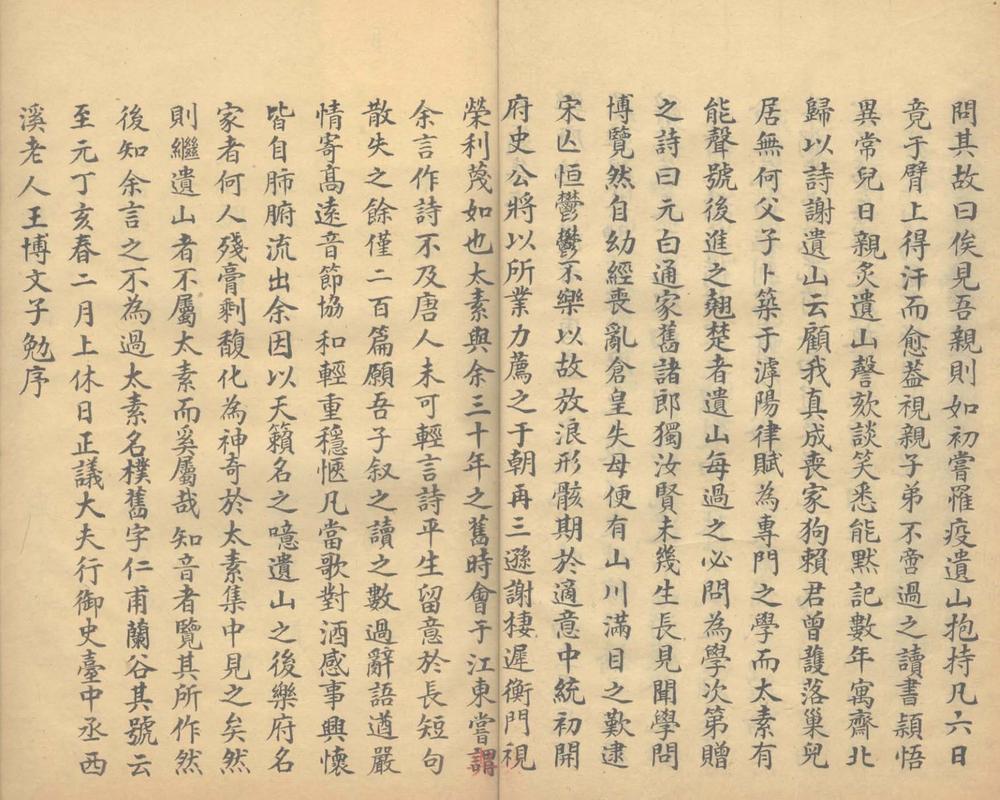 問其故曰俟見吾親則如初嘗罹疫遺山抱持凡六日
竟于臂上得汗而愈葢視親子弟不啻過之讀書穎悟
異常兒日親炙遺山謦欬談笑悉能默記數年寓齋北
歸以詩謝遺山云顧我真成喪家狗賴君曾護落巢兒
居無何父子卜築于滹陽律賦為專門之學而太素有
能聲號後進之翹楚者遺山每過之必問為學次第贈
之詩曰元白通家舊諸郎獨汝賢未幾生長見聞學問
博覽然自幼經喪亂倉皇失母便有山川滿目之歎逮
宋亾恒鬱鬱不樂以故放浪形骸期於適意中統初開
府史公將以所業力薦之于朝再三遜謝棲遲衡門視
榮利蔑如也太素與余三十年之舊時會于江東嘗謂
余言作詩不及唐人未可輕言詩平生留意於長短句
散失之餘僅二百篇願吾子叙之讀之數過辭語遒嚴
情寄高遠音節協和輕重穩愜凡當歌對酒感事興懷
皆自肺腑流出余因以天籟名之噫遺山之後樂府名
家者何人殘膏剩馥化為神奇於太素集中見之矣然
則繼遺山者不屬太素而奚屬哉知音者覽其所作然
後知余言之不為過太素名樸舊字仁甫蘭谷其號云
至元丁亥春二月上休日正議大夫行御史臺中丞西
溪老人王博文子勉序